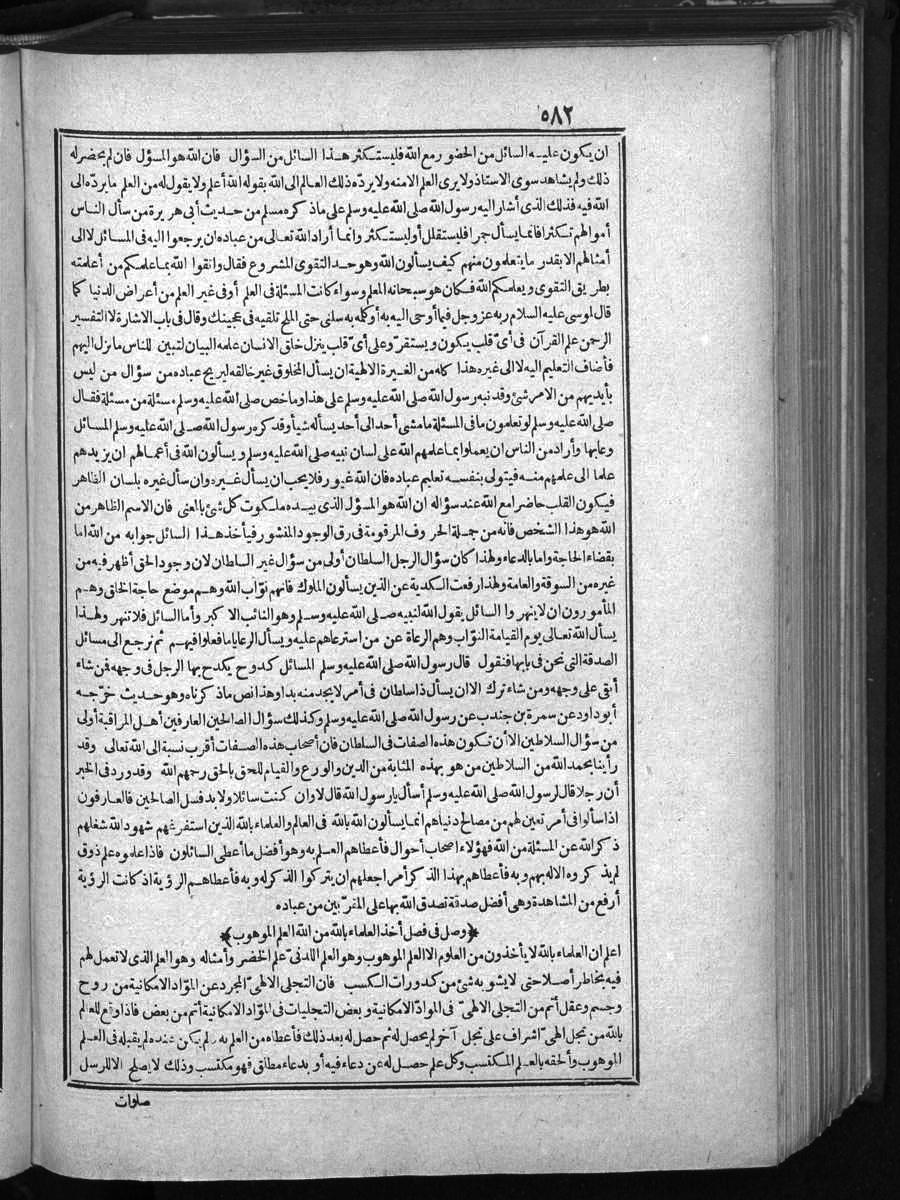 ٥٨٢
ان يكون عليه السائل من الحضور مع الله فليستكثر هذا السائل من السؤال فان الله هو المسؤل فان لم يحضر له
ذلك ولم يشاهد سوى الاستاذ ولا يرى العلم الا منه ولا يردّه ذلك العالم الى الله بقوله الله أعلم ولا يقول له من العلم ما يردّه الى
الله فيه فذلك الذى أشار اليه رسول الله صلى الله عليه وسلم على ما ذكره مسلم من حديث أبى هريرة من سأل الناس
أموالهم تكثرا فانما يسأل جمرا فليستقلل أو ليستكثر وانما أراد الله تعالى من عباده ان يرجعوا اليه فى المسائل لا الى
أمثالهم الا بقدر ما يتعلمون منهم كيف يسألون الله وهو حد التقوى المشروع فقال واتقوا الله بما علمكم من أعلمته
بطريق التقوى ويعلمكم الله فكان هو سبحانه المعلم وسواء كانت المسئلة فى العلم أو فى غير العلم من أعراض الدنيا كما
قال لموسى عليه السلام ربه عز وجل فيما أوحى اليه به أو كلمه به سلنى حتى الملح تلقيه فى عجينك وقال فى باب الاشارة لا التفسير
الرحمن علم القرآن فى أىّ قلب يكون ويستقرّ وعلى أىّ قلب ينزل خلق الانسان علمه البيان لتبين للناس ما نزل اليهم
فأضاف التعليم اليه لا الى غيره هذا كله من الغيرة الالهية ان يسأل المخلوق غير خالقه ليريح عباده من سؤال من ليس
بأيديهم من الامر شئ وقد نبه رسول الله صلى الله عليه وسلم على هذا وما خص صلى الله عليه وسلم مسئلة من مسئلة فقال
صلى الله عليه وسلم لو تعلمون ما فى المسئلة ما مشى أحد الى أحد يسأله شيأ وقد كره رسول الله صلى الله عليه وسلم المسائل
وعابها وأراد من الناس ان يعملوا بما علمهم الله على لسان نبيه صلى الله عليه وسلم ويسألون الله فى أعمالهم ان يزيدهم
علما الى علمهم منه فيتولى بنفسه تعليم عباده فان الله غيور فلا يحب ان يسأل غيره وان سأل غيره بلسان الظاهر
فيكون القلب حاضرا مع الله عند سؤاله ان الله هو المسؤل الذى بيده ملكوت كل شئ بالمعنى فان الاسم الظاهر من
الله هو هذا الشخص فانه من جملة الحروف المرقومة فى رق الوجود المنشور فيأخذ هذا السائل جوابه من الله اما
بقضاء الحاجة واما بالدعاء ولهذا كان سؤال الرجل السلطان أولى من سؤال غير السلطان لان وجود الحق أظهر فيه من
غيره من السوقة والعامة ولهذا رفعت الكدية عن الذين يسألون الملوك فانهم نوّاب الله وهم موضع حاجة الخلق وهم
المأمورون ان لا ينهروا السائل يقول الله لنبيه صلى الله عليه وسلم وهو النائب الاكبر وأما السائل فلا تنهر ولهذا
يسأل الله تعالى يوم القيامة النوّاب وهم الرعاة عن من استرعاهم عليه ويسأل الرعايا ما فعلوا فيهم ثم نرجع الى مسائل
الصدقة التى نحن فى بابها فنقول قال رسول الله صلى الله عليه وسلم المسائل كدوح يكدح بها الرجل فى وجهه فمن شاء
أبقى على وجهه ومن شاء ترك الا ان يسأل ذا سلطان فى أمر لا يجد منه بدا وهذا نص ما ذكرناه وهو حديث خرّجه
أبو داود عن سمرة بن جندب عن رسول الله صلى الله عليه وسلم وكذلك سؤال الصالحين العارفين أهل المراقبة أولى
من سؤال السلاطين الا أن تكون هذه الصفات فى السلطان فان أصحاب هذه الصفات أقرب نسبة الى الله تعالى وقد
رأينا بحمد الله من السلاطين من هو بهذه المثابة من الدين والورع والقيام للحق بالحق رحمهم الله وقد ورد فى الخبر
أن رجلا قال لرسول الله صلى الله عليه وسلم أسأل يا رسول الله قال لا وان كنت سائلا ولا بد فسل الصالحين فالعارفون
اذا سألوا فى أمر تعين لهم من مصالح دنياهم انما يسألون الله بالله فى العالم والعلماء بالله الذين استفرغهم شهود الله شغلهم
ذكر الله عن المسئلة من الله فهؤلاء أصحاب أحوال فأعطاهم العلم به وهو أفضل ما أعطى السائلون فاذا علموه علم ذوق
لم يذكروه الا له بهم وبه فأعطاهم بهذا الذكر أمرا جعلهم ان يتركوا الذكر له وبه فأعطاهم الرؤية اذ كانت الرؤية
أرفع من المشاهدة وهى أفضل صدقة تصدق الله بها على المقرّبين من عباده
﴿وصل فى فصل أخذ العلماء بالله من الله العلم الموهوب﴾
اعلم ان العلماء بالله لا يأخذون من العلوم الا العلم الموهوب وهو العلم اللدنىّ علم الخضر وأمثاله وهو العلم الذى لا تعمل لهم
فيه بخاطر أصلا حتى لا يشوبه شئ من كدورات الكسب فان التجلى الالهىّ المجرد عن الموّاد الامكانية من روح
وجسم وعقل أتم من التجلى الالهىّ فى الموادّ الامكانية وبعض التجليات فى الموّاد الامكانية أتم من بعض فاذا وقع للعالم
بالله من تجل الهىّ اشراف على تجل آخر لم يحصل له ثم حصل له بعد ذلك فأعطاه من العلم به ما لم يكن عنده لم يقبله فى العلم
الموهوب وألحقه بالعلم المكتسب وكل علم حصل له عن دعاء فيه أو بدعاء مطلق فهو مكتسب وذلك لا يصلح الا للرسل
صلوات